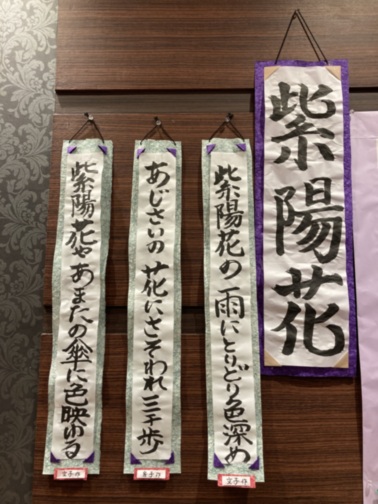 紫陽花
紫陽花の雨にとりどり色深め
あじさいの花にさそわれ三千歩
紫陽花やあまたの傘に色映ゆる